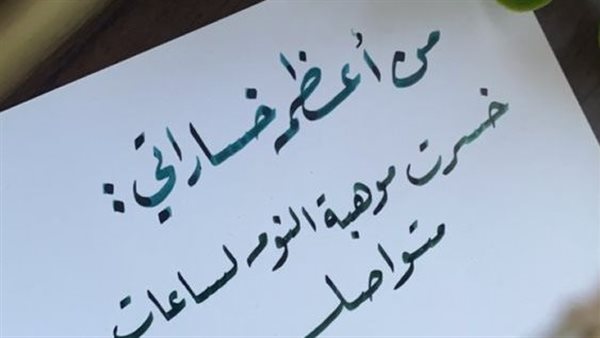 من أعظم خساراتي :
خسرت موهبة النوم لساعات
متواصل